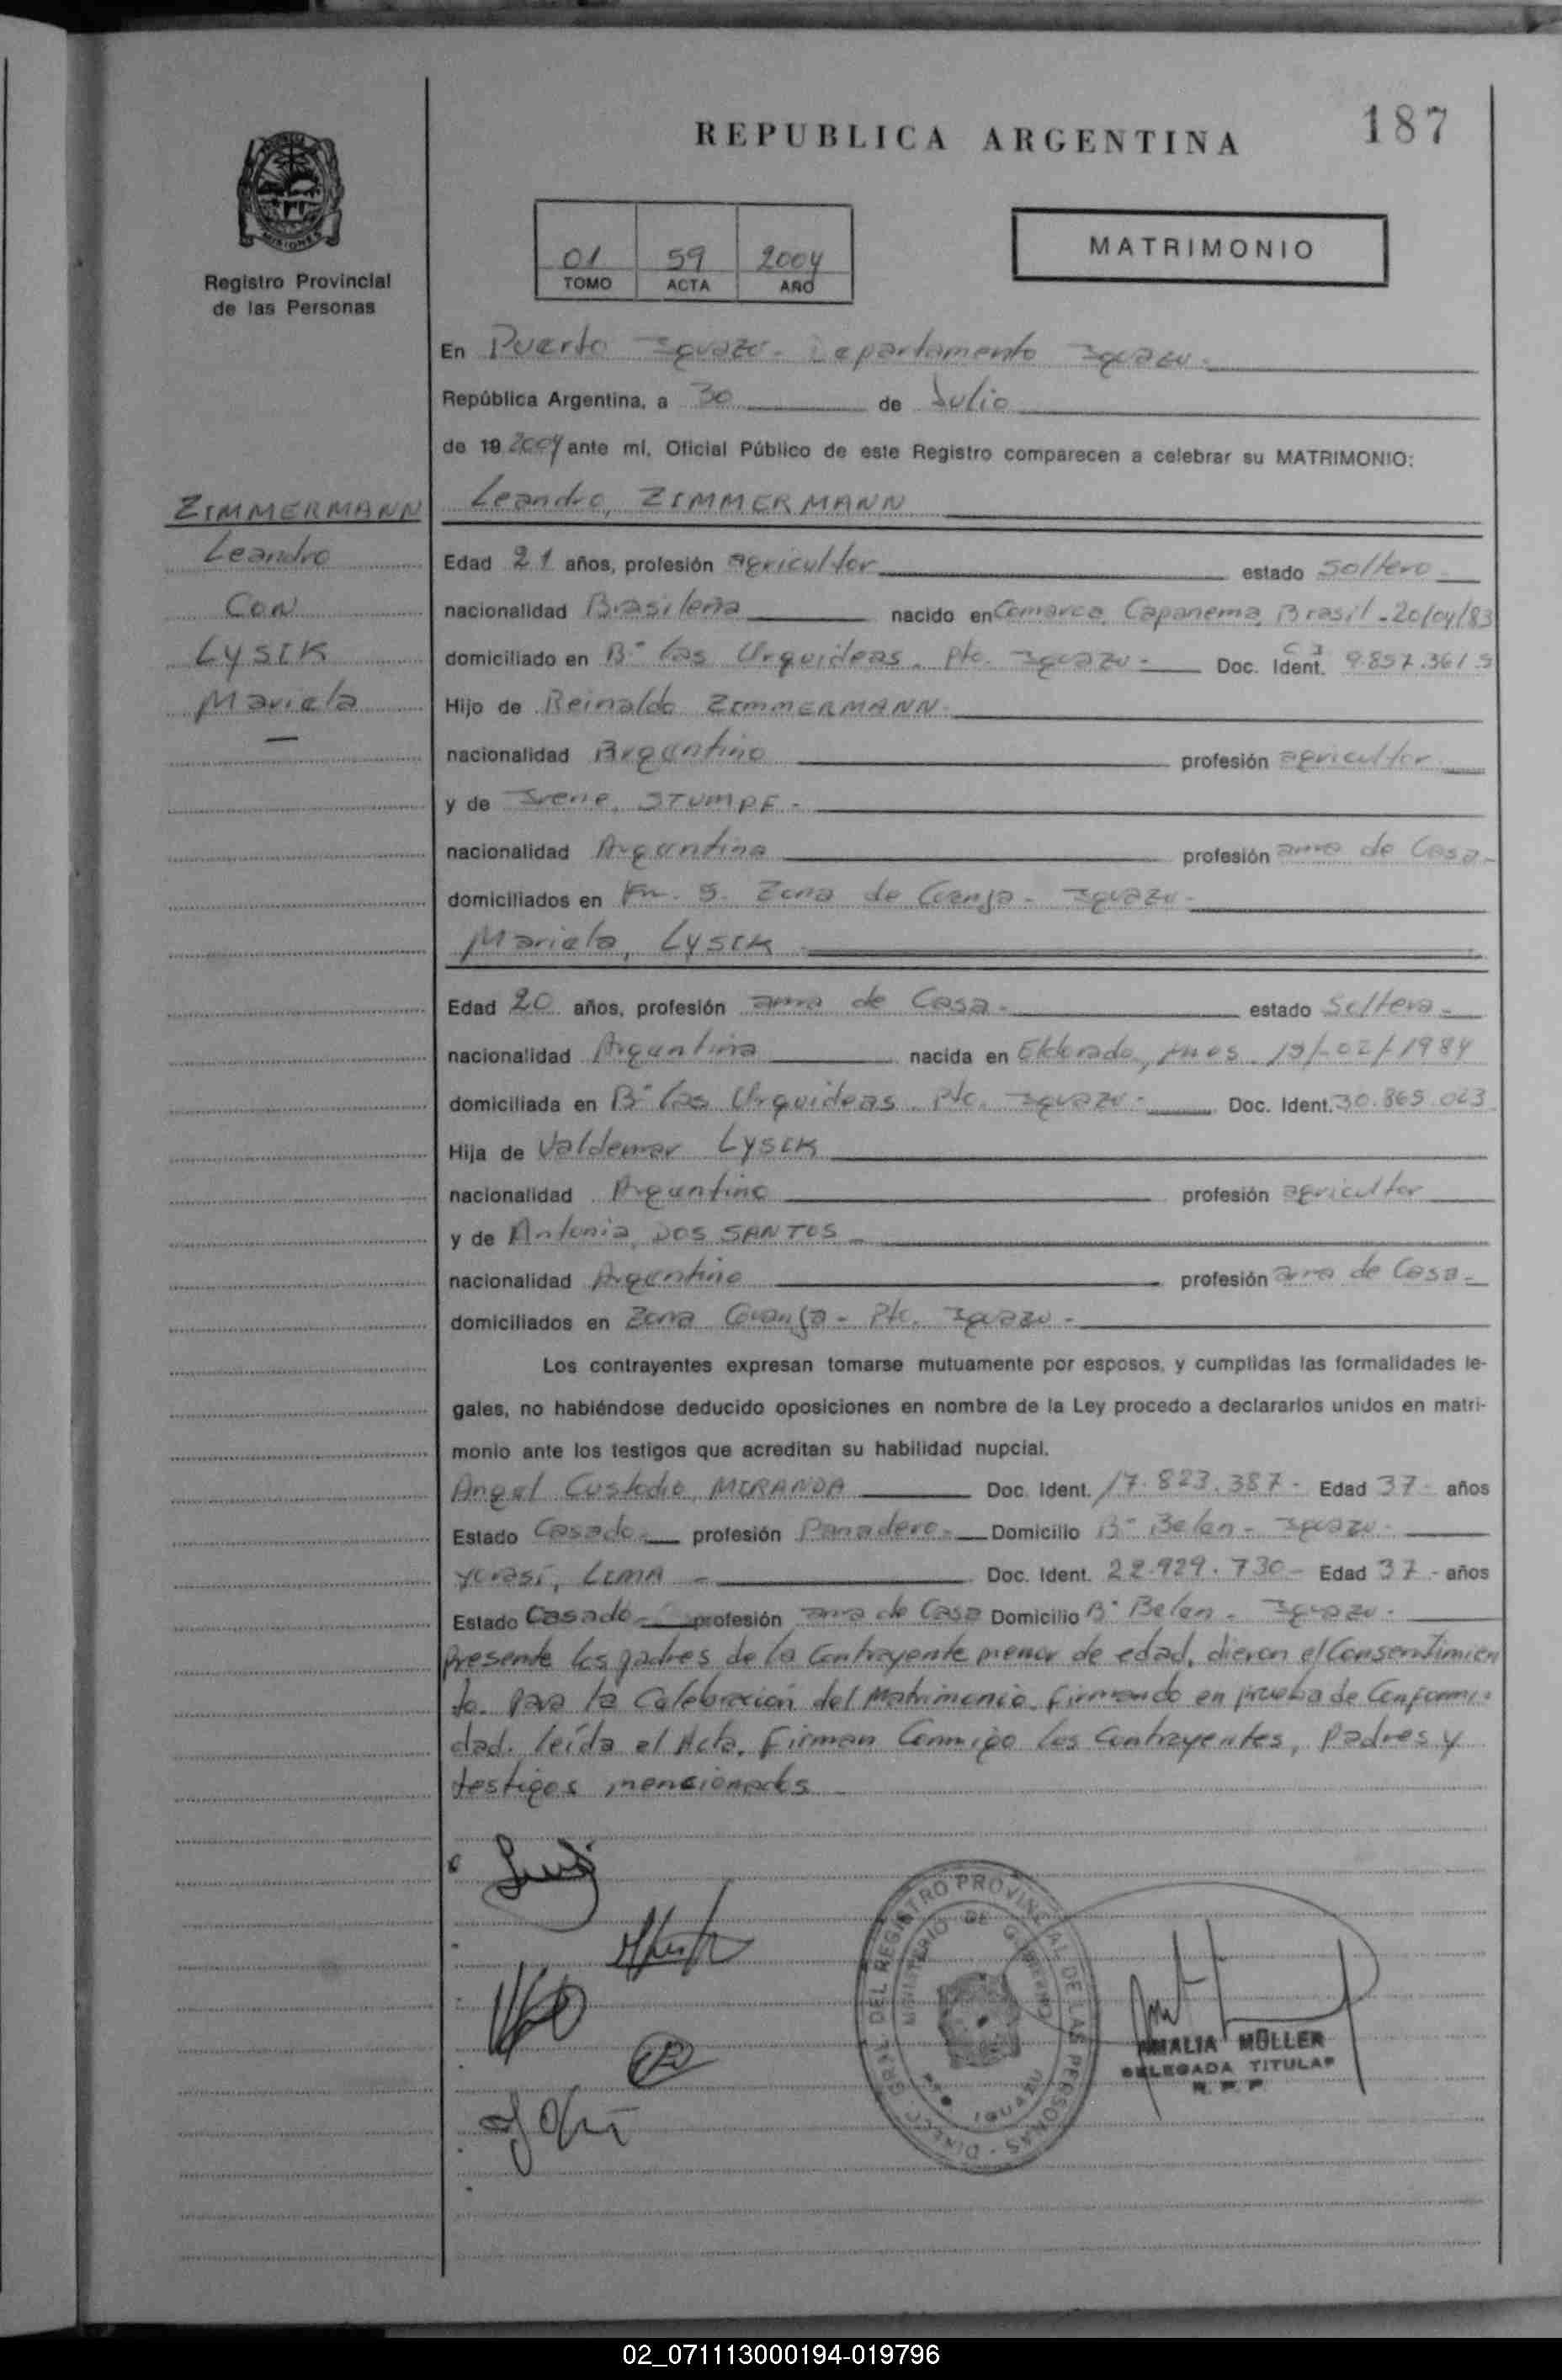 187
REPUBLICA ARGENTINA
MISIONES
Registro Provincial
de las Personas
01 59 2004
TOMO ACTA AÑO
MATRIMONIO
En Puerto Iguazú - Departamento Iguazú -
República Argentina, a 30 de Julio
de 19 2004 ante mí, Oficial Público de este Registro comparecen a celebrar su MATRIMONIO:
ZIMMERMANN
Leandro
Con
LYSIK
Mariela
Leandro, ZIMMERMANN
Edad 21 años, profesión agricultor estado Soltero
nacionalidad Brasileña nacido en Comarca Capanema, Brasil - 20/04/83
domiciliado en B° las Orquideas. Pto. Iguazú - Doc. Ident. C I 9.857.361 5
Hijo de Reinaldo ZIMMERMANN.
nacionalidad Argentino profesión agricultor
y de Irene, STUMPF -
nacionalidad Argentina profesión ama de Casa -
domiciliados en Km. 5. Zona de Granja - Iguazú -
Mariela, LYSIK
Edad 20 años, profesión ama de Casa - estado Soltera -
nacionalidad Argentina nacida en Eldorado, Mnes. 19/-02/-1984
domiciliada en B° las Orquideas Pto. Iguazú - Doc. Ident. 30.865.023
Hija de Valdemar LYSIK
nacionalidad Argentino profesión agricultor
y de Antonia, DOS SANTOS -
nacionalidad Argentina profesión ama de Casa -
domiciliados en Zona Granja - Pto. Iguazú -
Los contrayentes expresan tomarse mutuamente por esposos, y cumplidas las formalidades le-
gales, no habiéndose deducido oposiciones en nombre de la Ley procedo a declararlos unidos en matri-
monio ante los testigos que acreditan su habilidad nupcial.
Angel Custodio, MIRANDA Doc. Ident. 17.823.387 - Edad 37 - años
Estado Casado - profesión Panadero - Domicilio B° Belen - Iguazú -
LIMA - Doc. Ident. 22.929.730 - Edad 37 - años
Estado Casado - profesión ama de Casa Domicilio B° Belen - Iguazú -
Presente los padres de la Contrayente menor de edad, dieron el Consentimien
to. para la Celebración del Matrimonio, firmando en prueba de Conformi-
dad. leída el Acta, Firman Conmigo los Contrayentes, Padres y
testigos mencionados
DIREC. GRAL. DEL REGISTRO PROVINCIAL DE LAS PERSONAS
MINISTERIO DE GOBIERNO
PTO. IGUAZU
AMALIA MÜLLER
DELEGADA TITULAR
R. P. P.
02_071113000194-019796